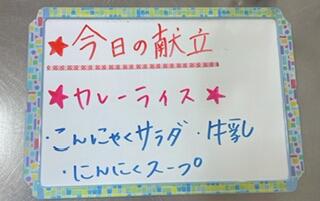 ★今日の献立
★カレーライス★
・こんにゃくサラダ・牛乳
・にんにくスープ